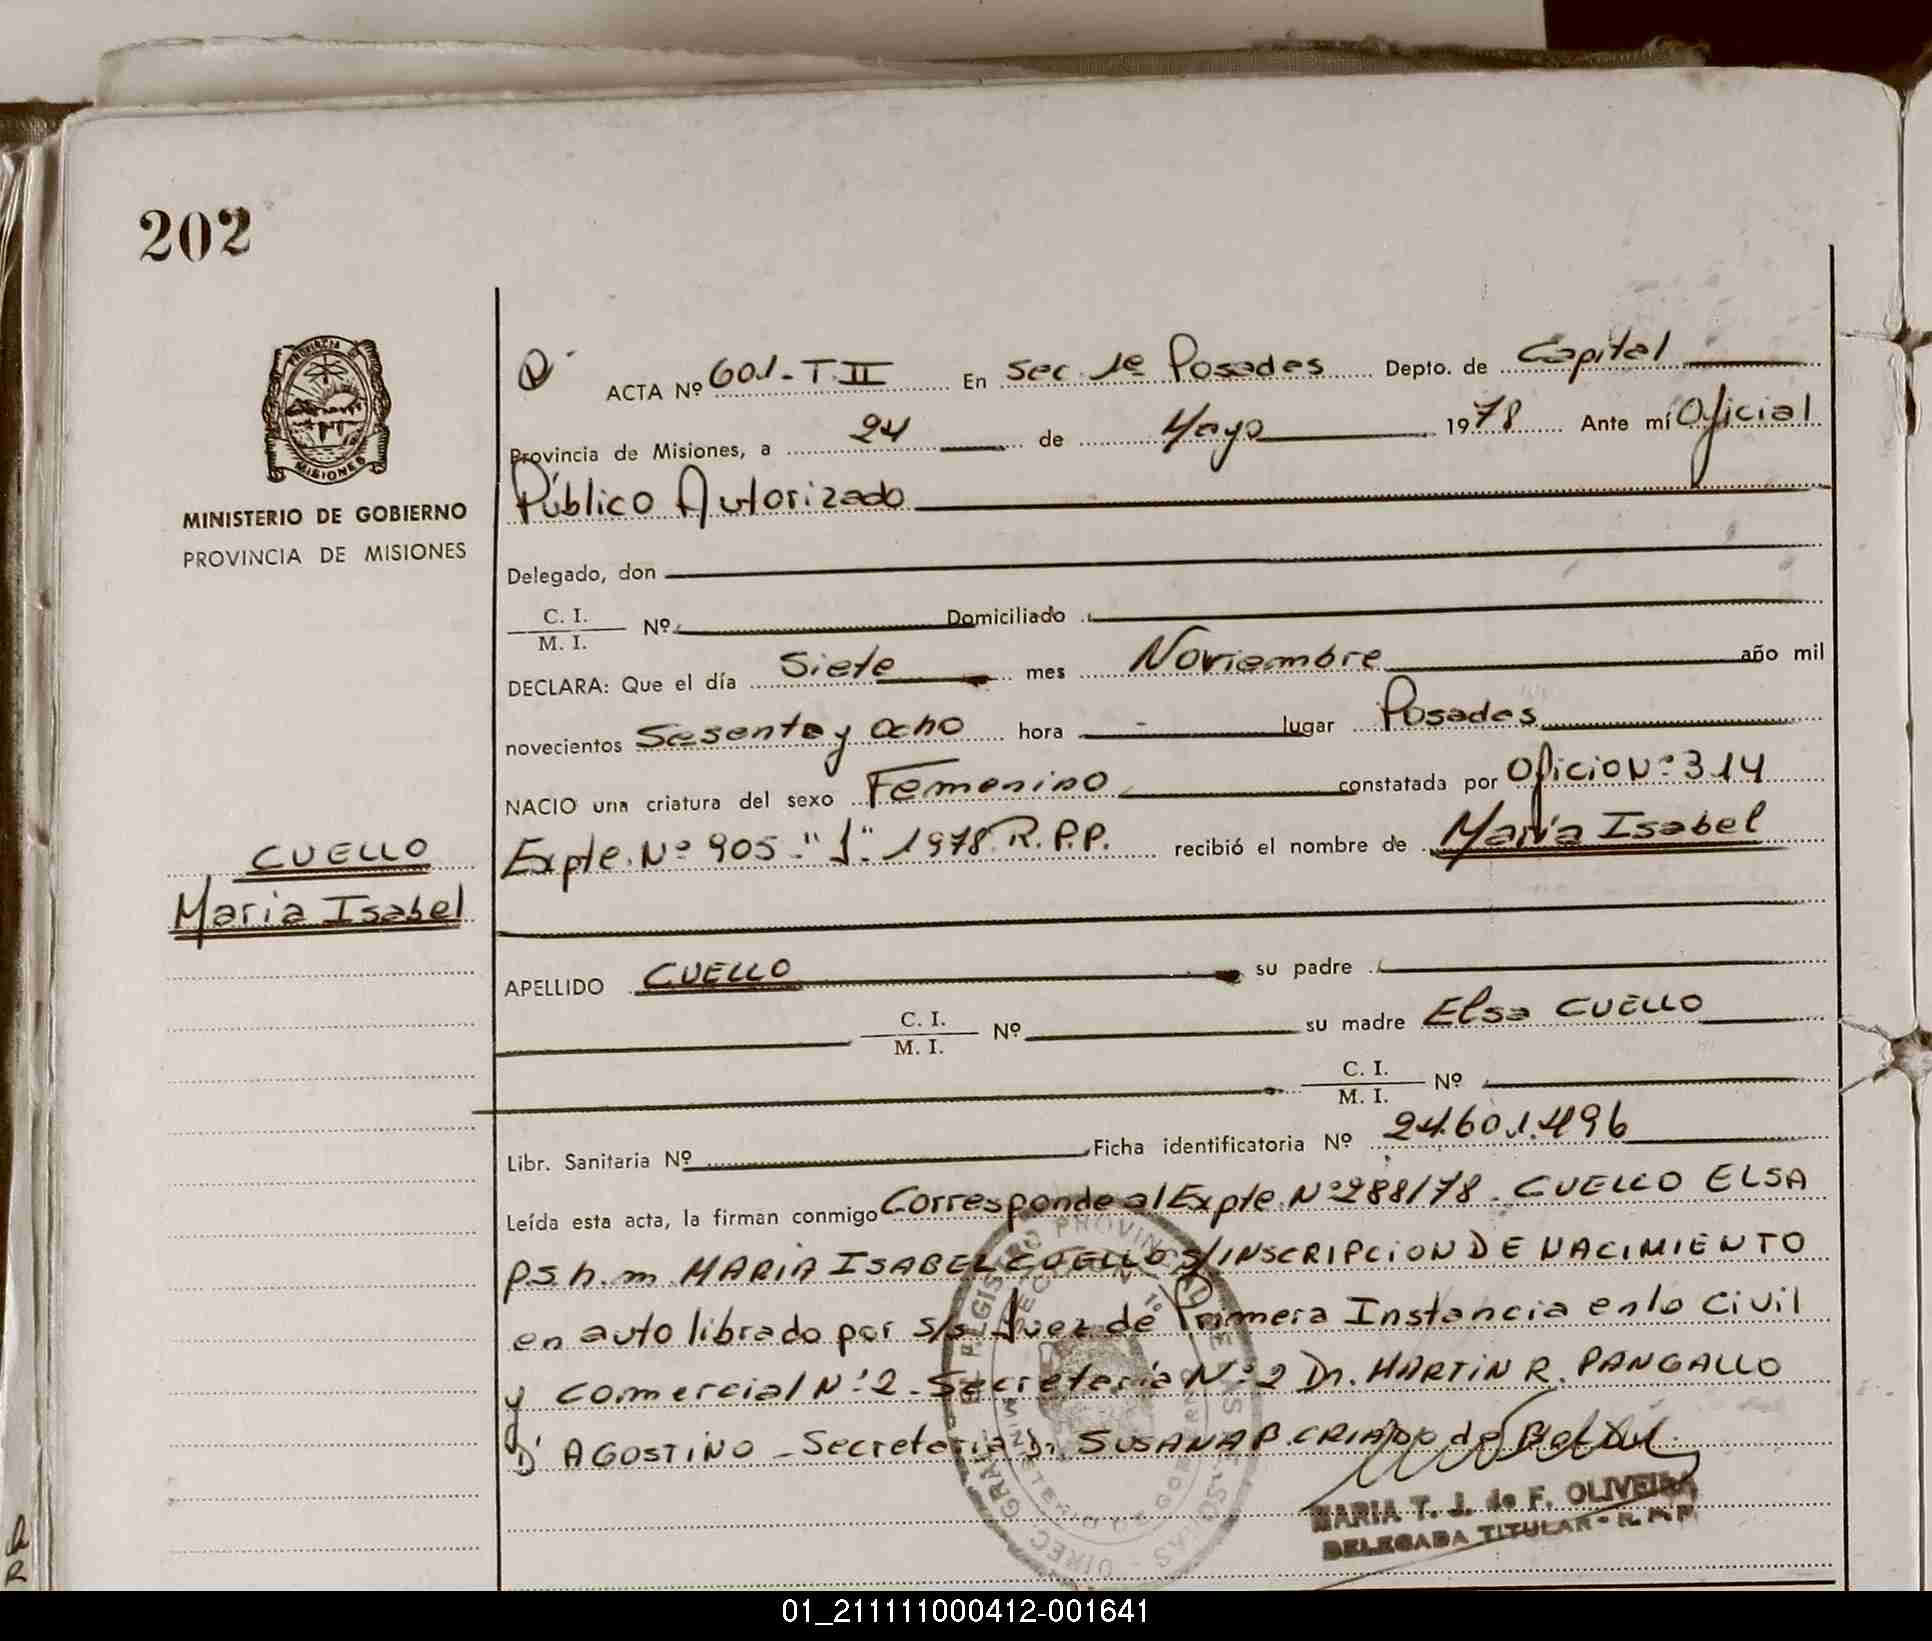 202
PROVINCIA DE
MISIONES
MINISTERIO DE GOBIERNO
PROVINCIA DE MISIONES
ACTA Nº 601-T.II En Sec 1ª Posadas Depto. de Capital
Provincia de Misiones, a 24 de Mayo 1978 Ante mí Oficial
Público Autorizado
Delegado, don
C. I.
M. I.
Nº Domiciliado
DECLARA: Que el día Siete mes Noviembre año mil
novecientos Sesenta y Ocho hora - lugar Posadas
NACIO una criatura del sexo Femenino constatada por Oficio Nº 314
CUELLO
María Isabel
Expte. Nº 905-"J"-1978 R.P.P. recibió el nombre de María Isabel
APELLIDO CUELLO su padre
C. I.
M. I.
Nº su madre Elsa CUELLO
C. I.
M. I.
Nº
Libr. Sanitaria Nº Ficha identificatoria Nº 24.601.496
Leída esta acta, la firman conmigo Corresponde al Expte. Nº 288/78. CUELLO ELSA
p.s.h.m. MARIA ISABEL CUELLO S/INSCRIPCION DE NACIMIENTO
en auto librado por S/S Juez de Primera Instancia en lo Civil
y Comercial Nº 2 - Secretaría Nº 2 Dr. MARTIN R. PANGALLO
D' AGOSTINO - Secretaria Dr. SUSANA B. CRIADO de
MARIA T. J. de F. OLIVEIRA
DELEGADA TITULAR - R. P. P.
01_211111000412-001641